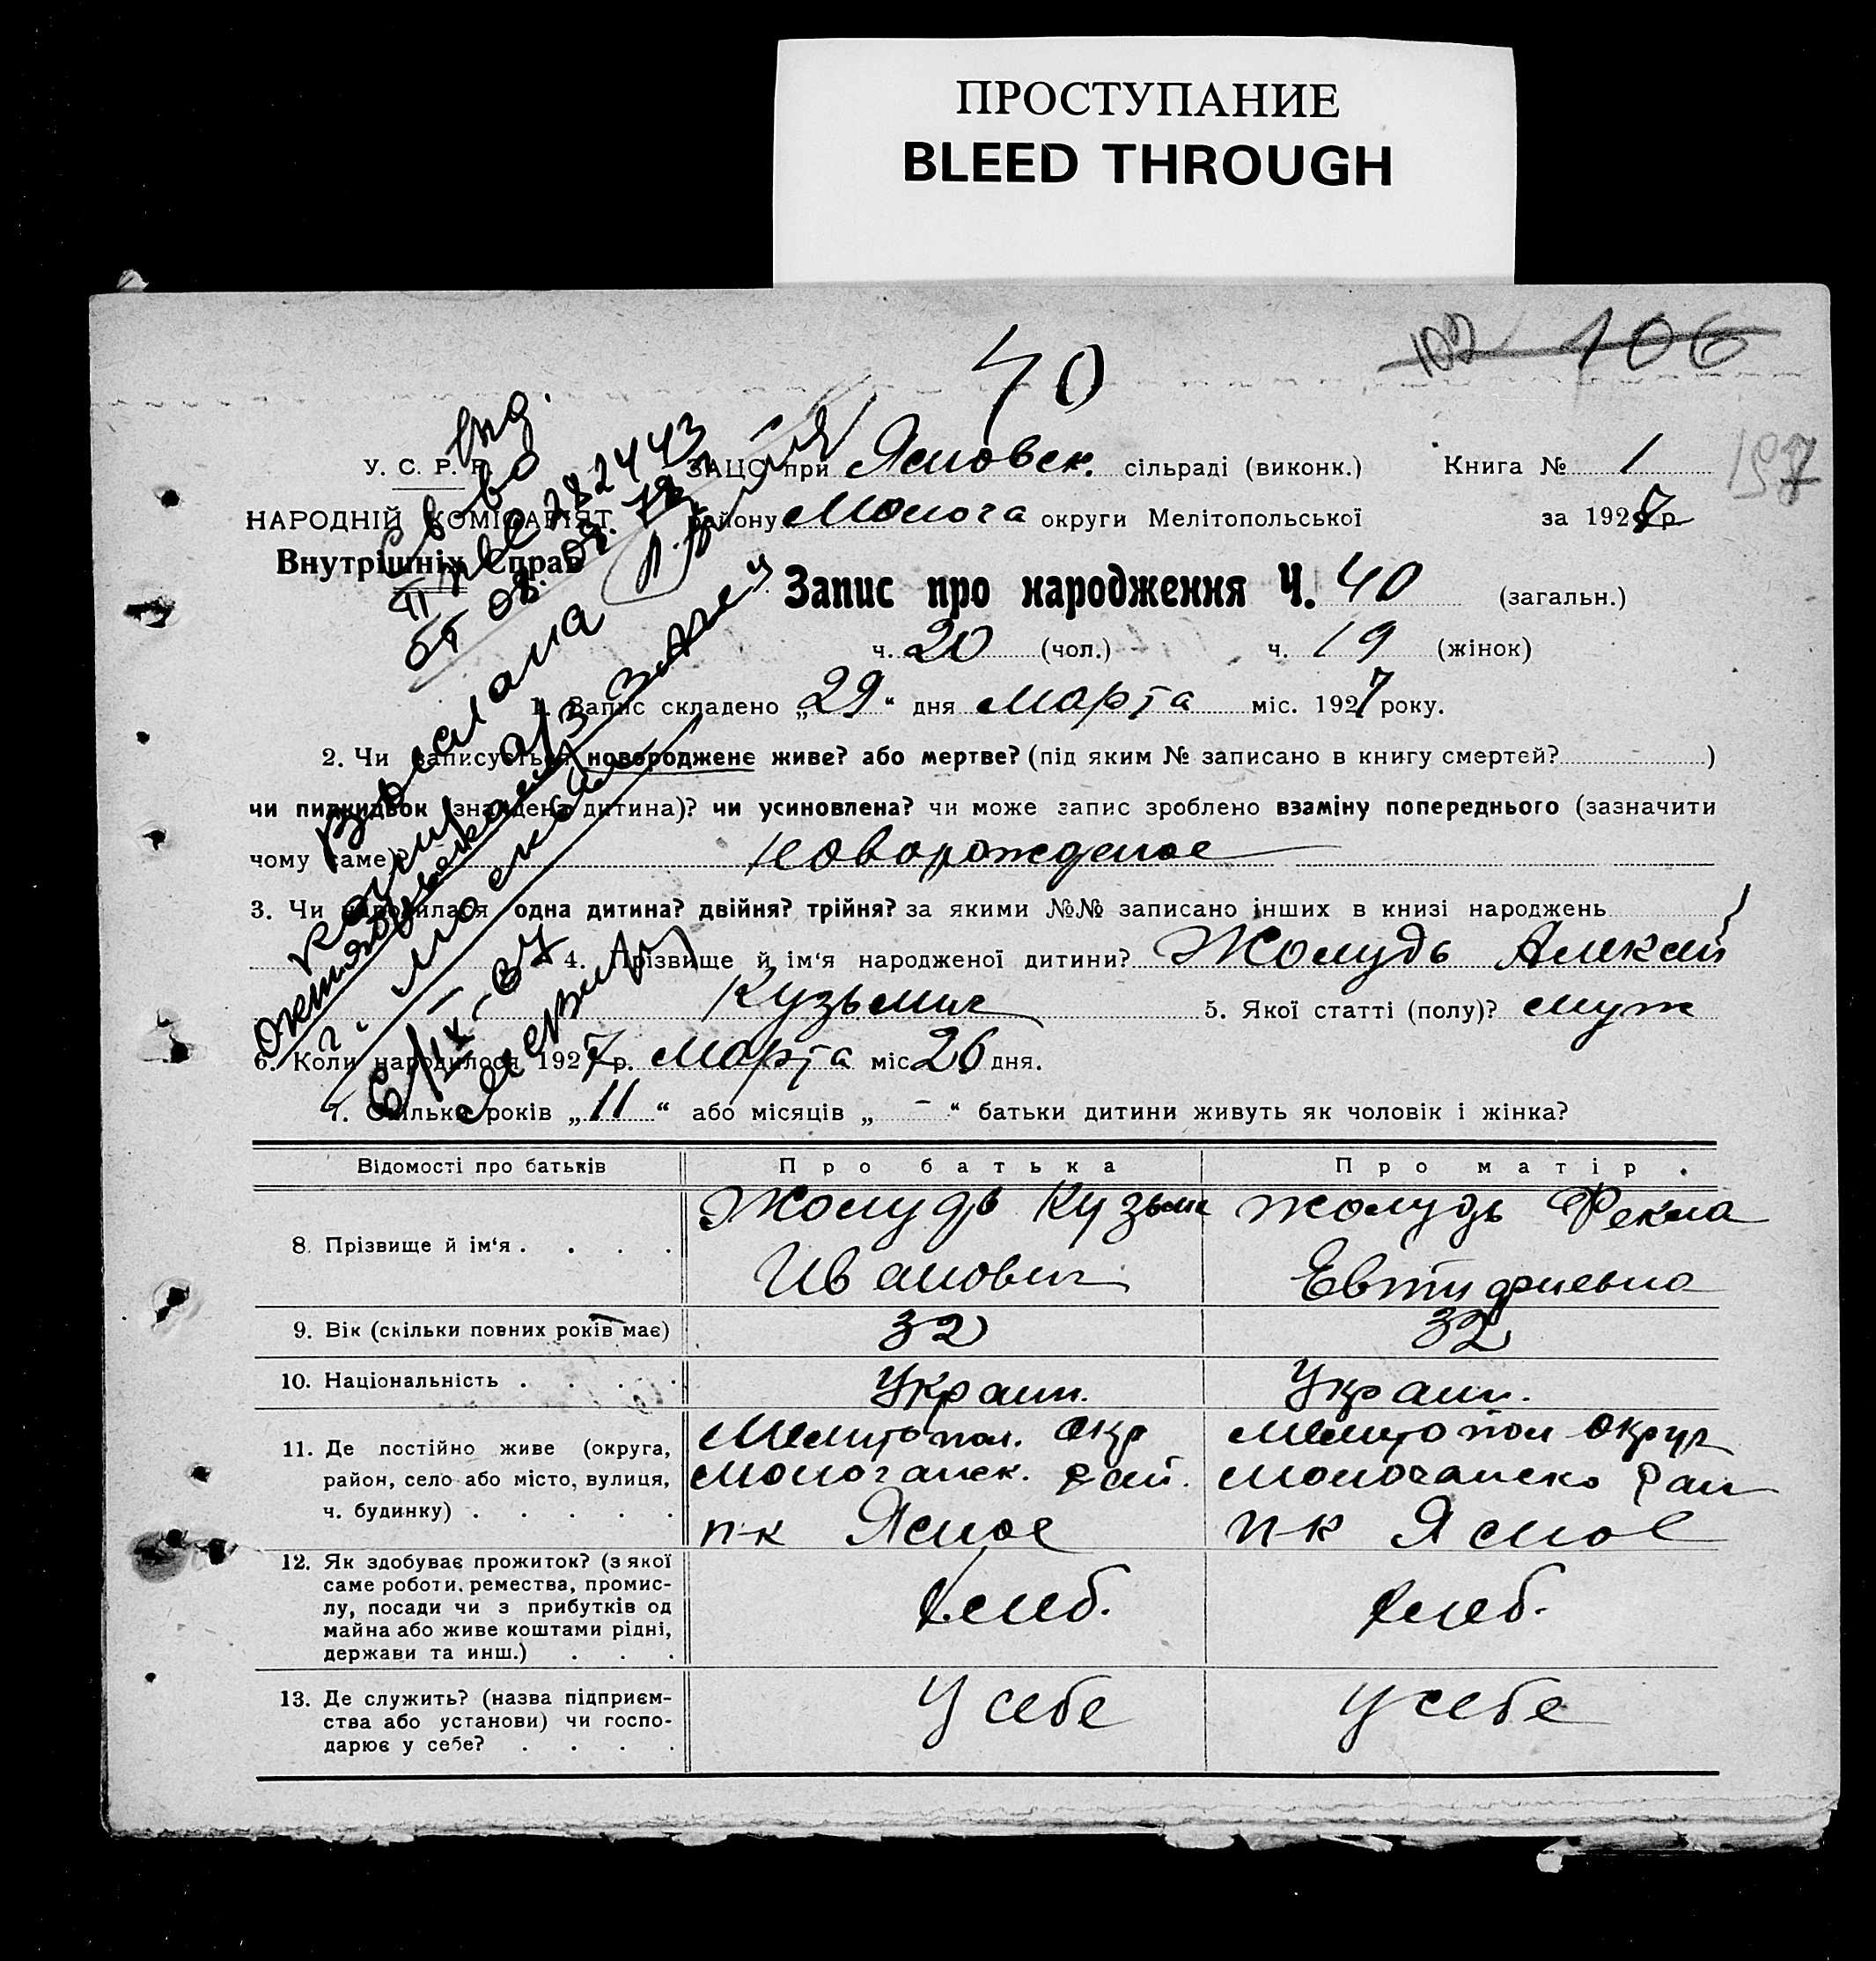 ПРОСТУПАНИЕ
BLEED THROUGH
106
40
197
У. С. Р. Р.
НАРОДНІЙ КОМІСАРІЯТ
Внутрішніх Справ
ЗАЦС при Ясновск. сільраді (виконк.) Книга № 1
району Молога округи Мелітопольської за 1927 р.
Запис про народження Ч. 40 (загальн.)
ч. 20 (чол.) ч. 19 (жінок)
Выслана
1. Запис складено „29“ дня марта міс. 1927 року.
2. Чи записується новороджене живе? або мертве? (під яким № записано в книгу смертей? )
чи пидкидьок (знайдена дитина)? чи усиновлена? чи може запис зроблено взаміну попереднього (зазначити
чому саме) новорожденое
3. Чи народилася одна дитина? двійня? трійня? за якими №№ записано інших в книзі народжень
4. Прізвище й ім'я народженої дитини? Жолудь Алексей
Кузьмич 5. Якої статті (полу)? муж
6. Коли народилося 1927 р. марта міс 26 дня.
7. Скільки років „11“ або місяців „-“ батьки дитини живуть як чоловік і жінка?
Відомості про батьків Про батька Про матір.
8. Прізвище й ім'я . . . . Жолудь Кузьма Жолудь Фекла
Иванович Евтифиевна
9. Вік (скільки повних років має) 32 32
10. Національність . . . . Украин. Украин.
11. Де постійно живе (округа, район, село або місто, вулиця, ч. будинку) . . . . .
Мелитопол. окр Мелитопол округ
Молочанск. рай. Молочанско рай
п-к Ясное п-к Ясное
12. Як здобуває прожиток? (з якої саме роботи, ремества, промислу, посади чи з прибутків од майна або живе коштами рідні, держави та инш.) . . .
хлеб. хлеб.
13. Де служить? (назва підприємства або установи) чи господарює у себе? . . . .
У себе У себе